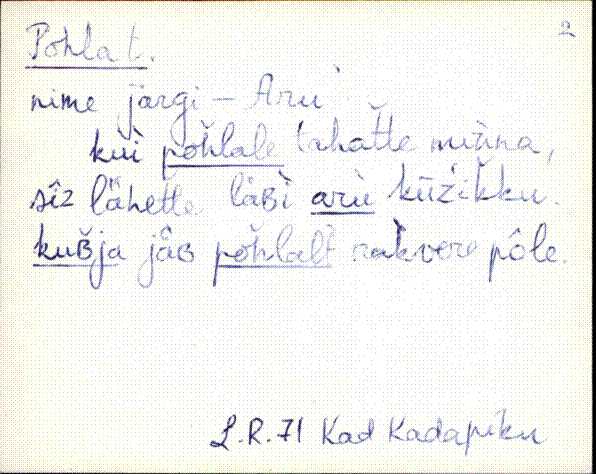 2
Pohla t.
nime järgi - Aru
kui pŏhlale tahatte minna,
sîz lähette läBì arù kūz'ikku.
kuʙja jâʙ pŏhlalt rakvere pôle.
L.R. 71 Kad Kadapiku